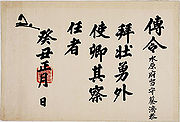 傳令
水原府留守蔡濟恭
拜壯勇外
使卿其察
任者
癸丑正月 日